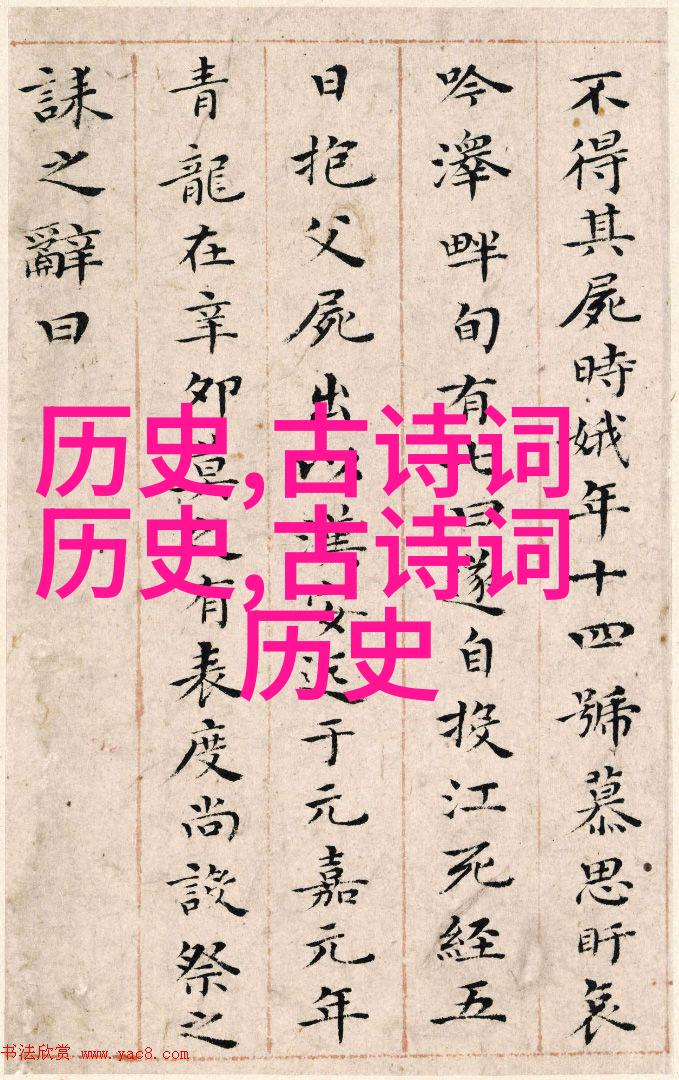 不得其屍時娥年十四號慕思盱哀
吟澤畔旬有七日遂自投江死經五
日抱父屍出以漢安迄于元嘉元年
青龍在辛卯莫之有表度尚設祭之
誄之辭曰
历史,古诗词
历史,古诗词
历史
书法欣赏 www.yac8.com